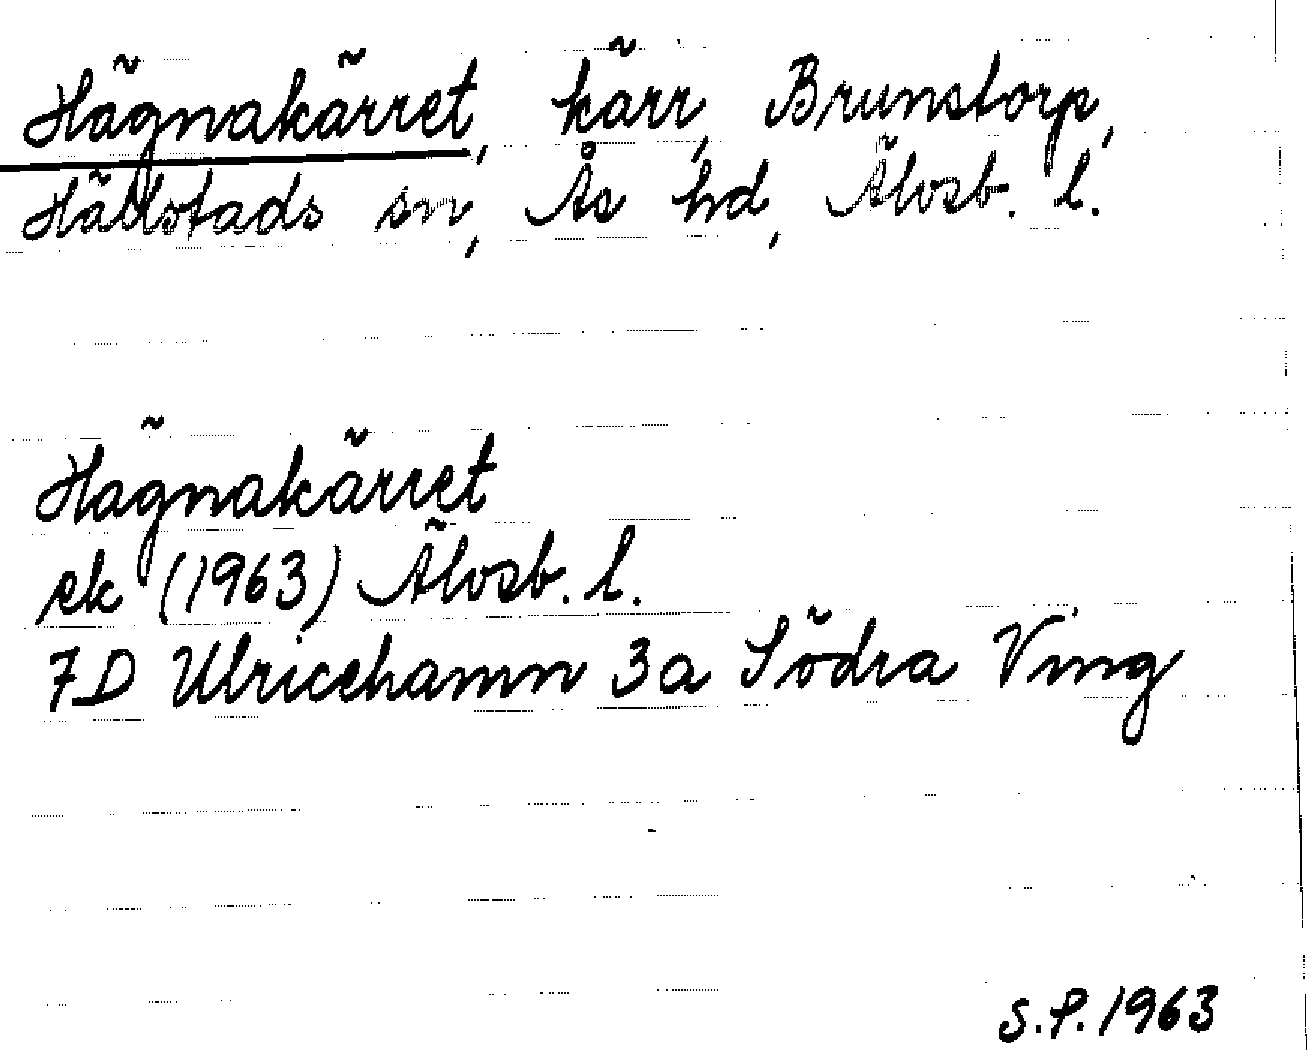 Hägnakärret, kärr, Brunstorp,
Hällstads sn, Ås hd, Älvsb. l.
Hägnakärret
ek (1963) Älvsb. l.
7D Ulricehamn 3a Södra Ving
S.P. 1963